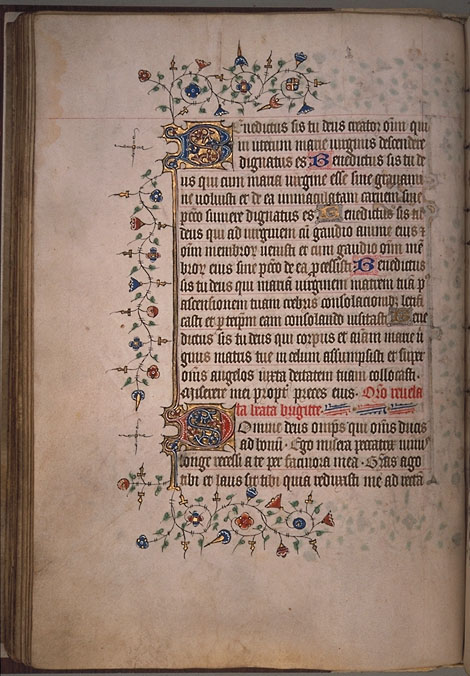 Benedictus sis tu deus creator om̄i qui
in uterum marie virginis descendere
dignatus es Benedictus sis tu de
us qui cum maria virgine esse sine grauami
ne voluisti et de ea immaculatam carnem sine
pctō sumere dignatus es Benedictus sis tu
deus qui ad virginem cū gaudio anime eius z
om̄i membror venisti et cum gaudio om̄i mē
bror eius sine pctō de ea processisti Benedictus
sis tu deus qui mariā virginem matrem tuā p
ascensionem tuam crebris consolacionib letifi
casti et p teipm̄ eam consolando visitasti Bene
dictus sis tu deus qui corpus et aīam marie v
ginis matris tue in celum assumpsisti et super
om̄s angelos iuxta deitatem tuam collocasti
Miserere mei propt preces eius Oro reuela
ta beata brigitte
Domine deus om̄ps qui om̄s ducis
ad bonū Ego misera peccatrix nimi
longe recessi a te per facinora mea Grās ago
tibi et laus sit tibi quia reduxisti me ad rectā